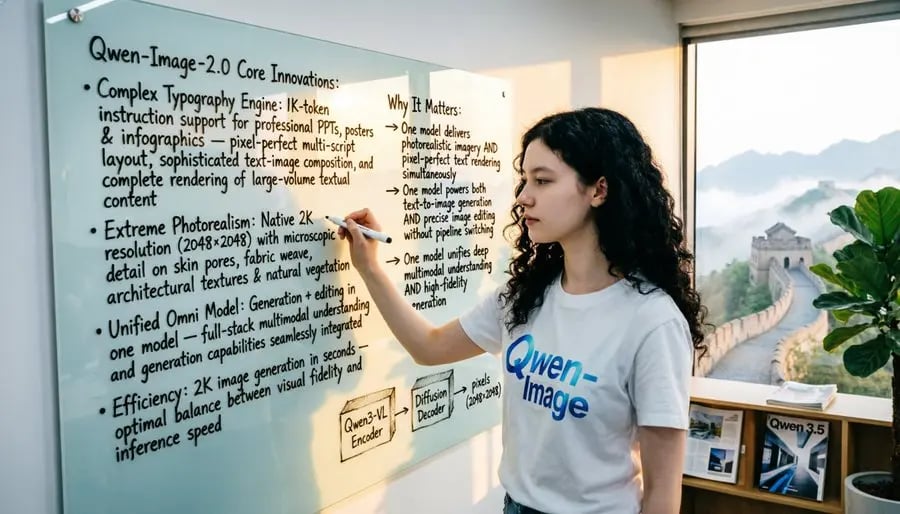 Qwen-Image-2.0 Core Innovations:
• Complex Typography Engine: 1K-token
instruction support for professional PPTs, posters
& infographics — pixel-perfect multi-script
layout, sophisticated text-image composition, and
complete rendering of large-volume textual
content
• Extreme Photorealism: Native 2K
resolution (2048×2048) with microscopic
detail on skin pores, fabric weave,
architectural textures & natural vegetation
• Unified Omni Model: Generation + editing in
one model — full-stack multimodal understanding
and generation capabilities seamlessly integrated
• Efficiency: 2K image generation in seconds —
optimal balance between visual fidelity and
inference speed
Why It Matters:
→ One model delivers
photorealistic imagery AND
pixel-perfect text rendering
simultaneously
→ One model powers both
text-to-image generation
AND precise image editing
without pipeline switching
→ One model unifies deep
multimodal understanding
AND high-fidelity
generation
Qwen3-VL
Encoder
→
Diffusion
Decoder
→ pixels
(2048×2048)
Qwen-
Image
Qwen 3.5